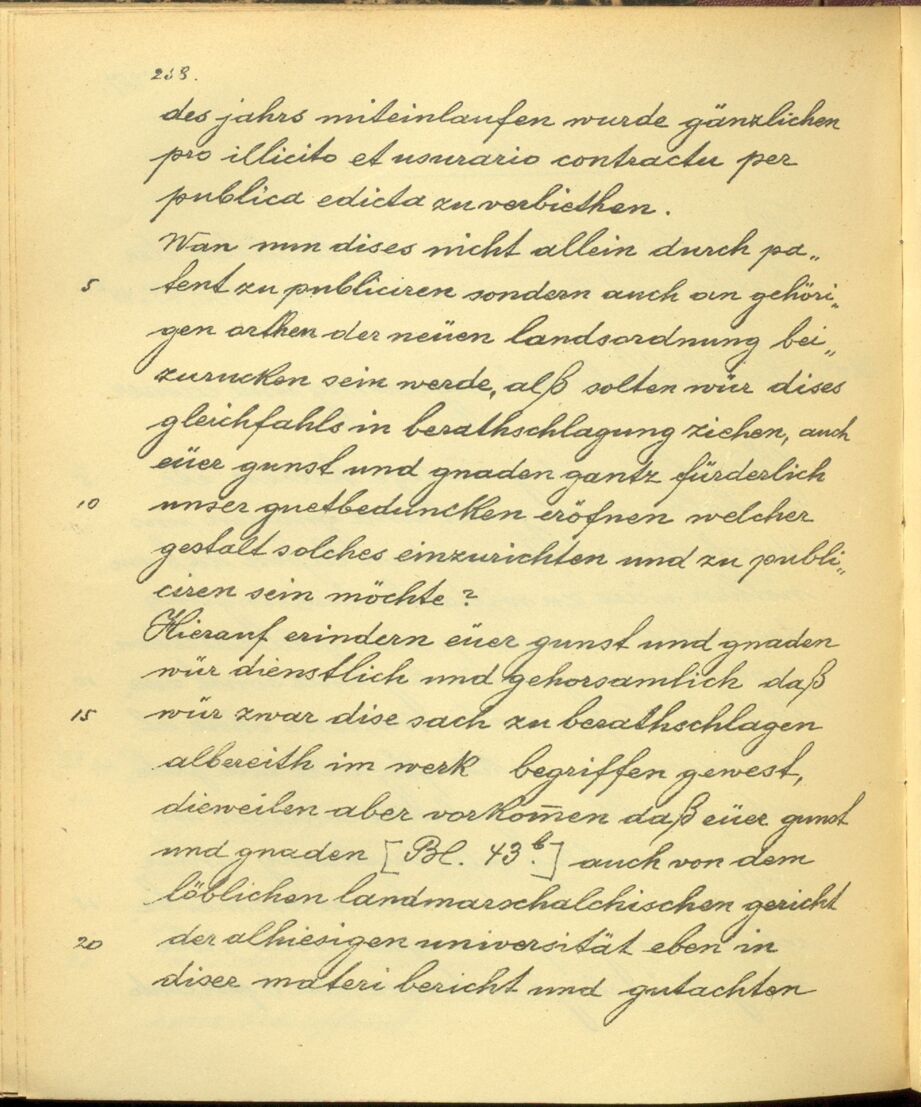 238.
des jahrs miteinlaufen wurde gänzlichen
pro illicito et usurario contractu per
publica edicta zu verbiethen.
Wan nun dises nicht allein durch pa„
5 tent zu publiciren sondern auch an gehöri„
gen orthen der neüen landsordnung bei„
zurucken sein werde, alß solten wür dises
gleichfahls in berathschlagung ziehen, auch
eüer gunst und gnaden gantz fürderlich
10 unser guetbeduncken eröfnen welcher
gestalt solches einzurichten und zu publi„
ciren sein möchte?
Hierauf erindern eüer gunst und gnaden
wür dienstlich und gehorsamlich daß
15 wür zwar dise sach zu berathschlagen
albereith im werk begriffen gewest,
dieweilen aber vorkom̅en daß eüer gunst
und gnaden [Bl. 43.b] auch von dem
löblichen landmarschalchischen gericht
20 der alhiesigen universität eben in
diser materi bericht und gutachten